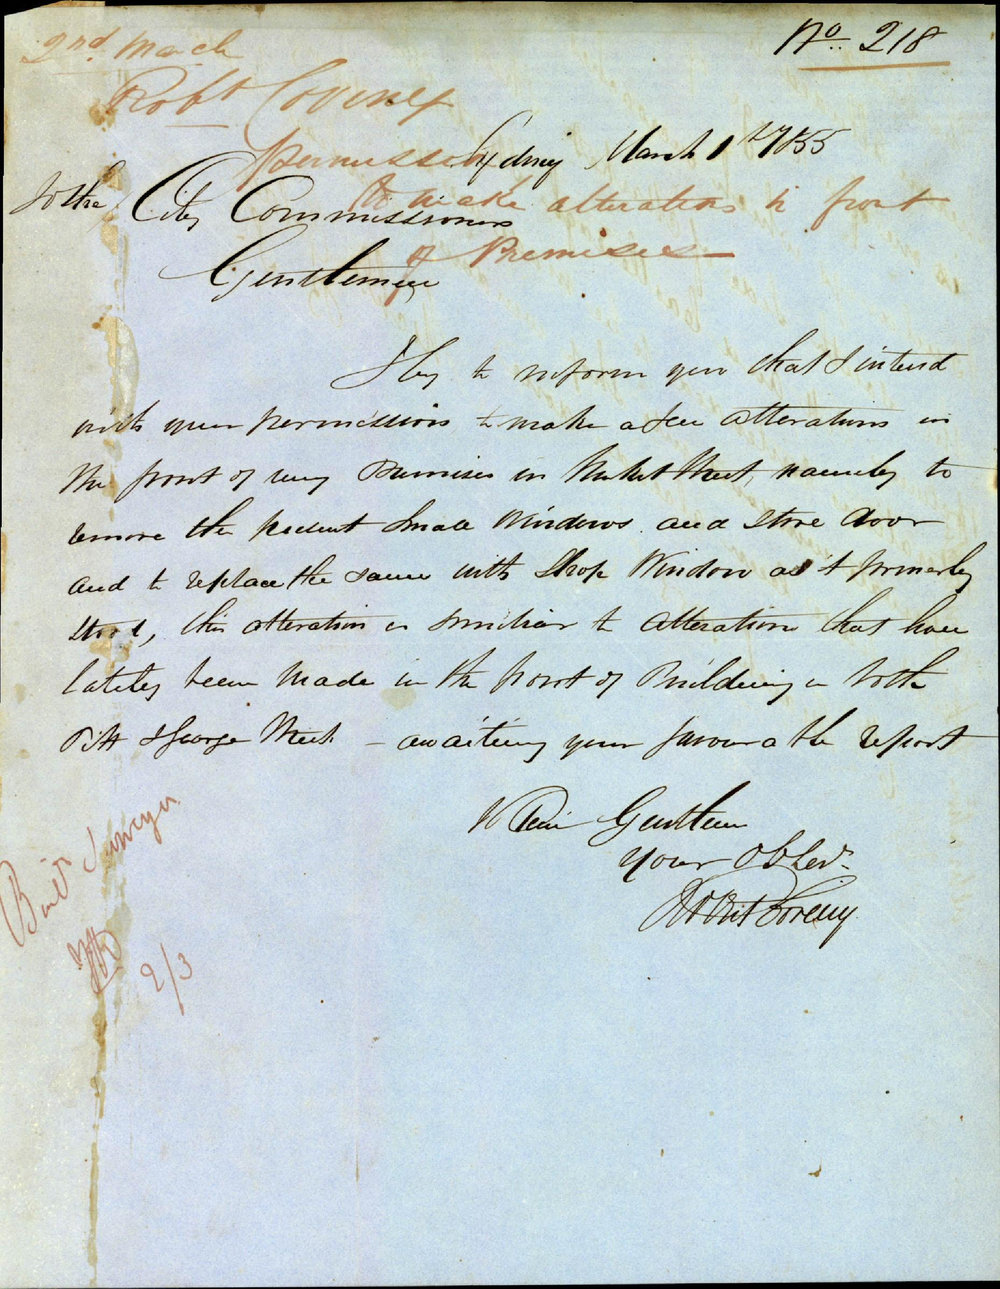 No. 218
2nd March
Robt Coveney
permission
to make alterations to front
of Premises
Sydney March 1st 1855
To the City Commissioners
Gentlemen
I beg to inform you that I intend
with your permission to make a few alterations in
the front of my Premises in Market Street, namely to
remove the present small Windows and store door
and to replace the same with Shop Window as it formerly
stood, this alteration is similar to alterations that have
lately been made in the front of Buildings in both
Pitt & George Street – awaiting your favourable report
I Remain Gentlemen
Your Ob. Ser.
Robt Coveney
City Surveyor
2/3